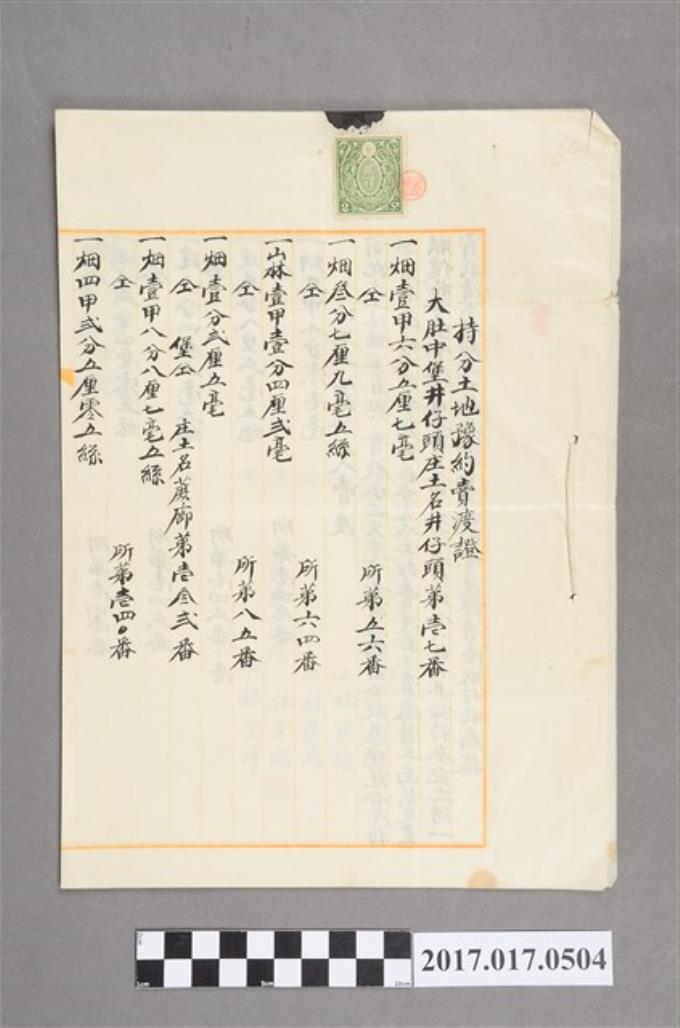 持分土地豫約賣渡證
大肚中堡井仔頭庄土名井仔頭第壱七番
一畑壹甲六分五厘七毫
仝 所第五六番
一畑叄分七厘九毫五絲
仝 所第六四番
一山林壹甲壹分四厘弍毫
仝 所第八五番
一畑壹分弍厘五毫
仝堡仝庄土名蔗廍第壱叄弍番
一畑壹甲八分八厘七毫五絲
仝 所第壱四〇番
一畑四甲弍分五厘零五絲
2017.017.0504